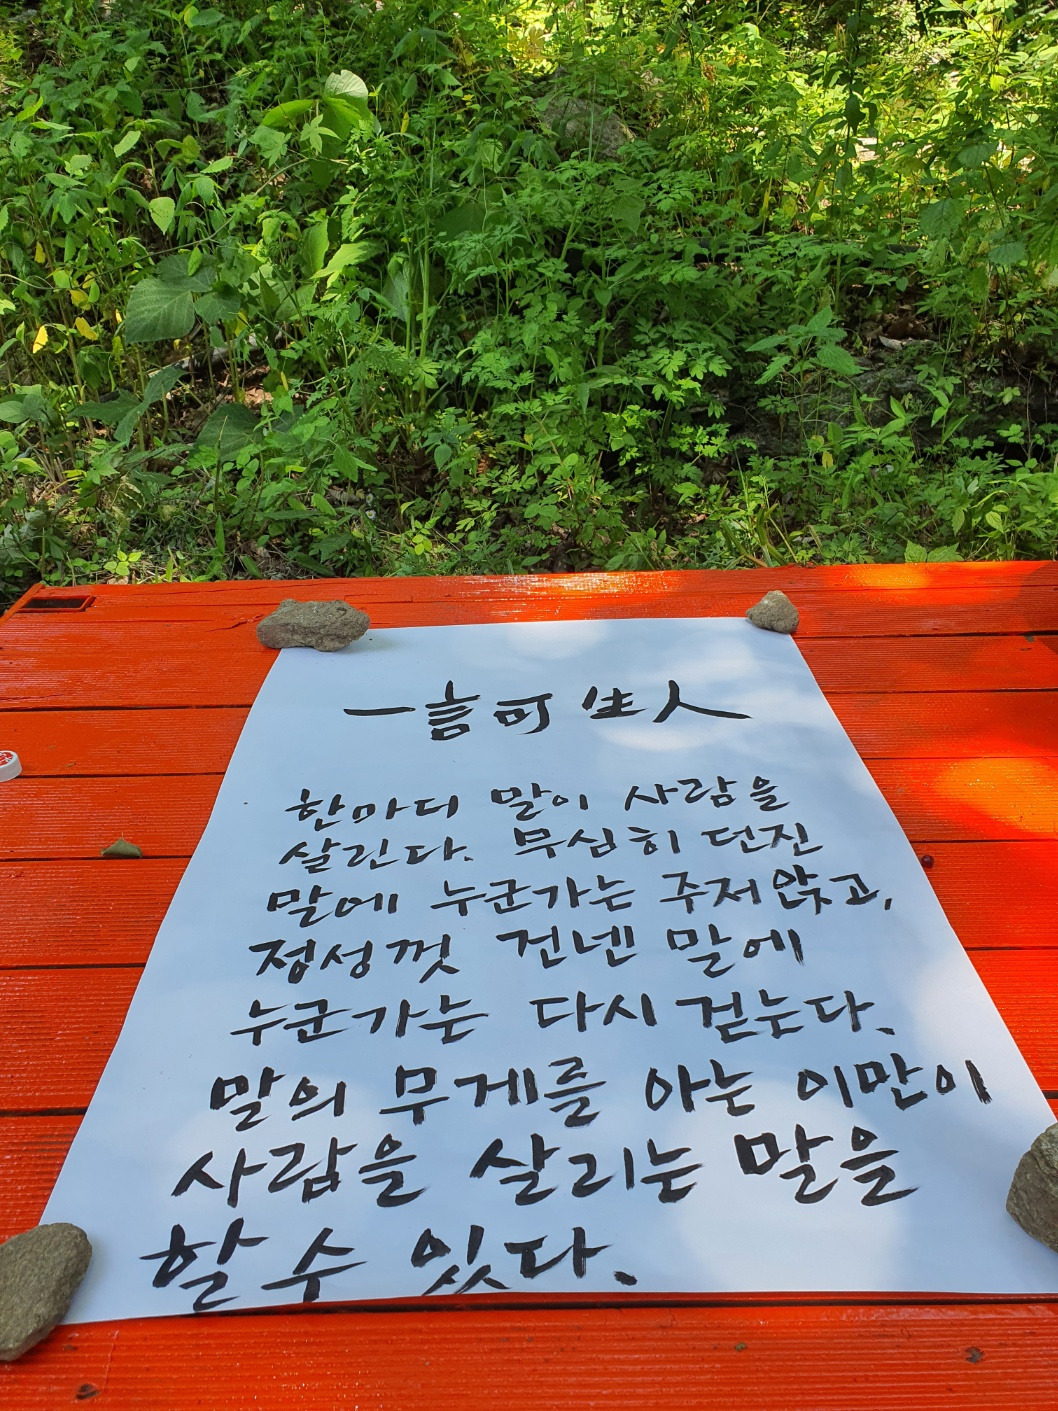 一言可生人
한마디 말이 사람을
살린다. 무심히 던진
말에 누군가는 주저앉고,
정성껏 건넨 말에
누군가는 다시 걷는다.
말의 무게를 아는 이만이
사람을 살리는 말을
할 수 있다.